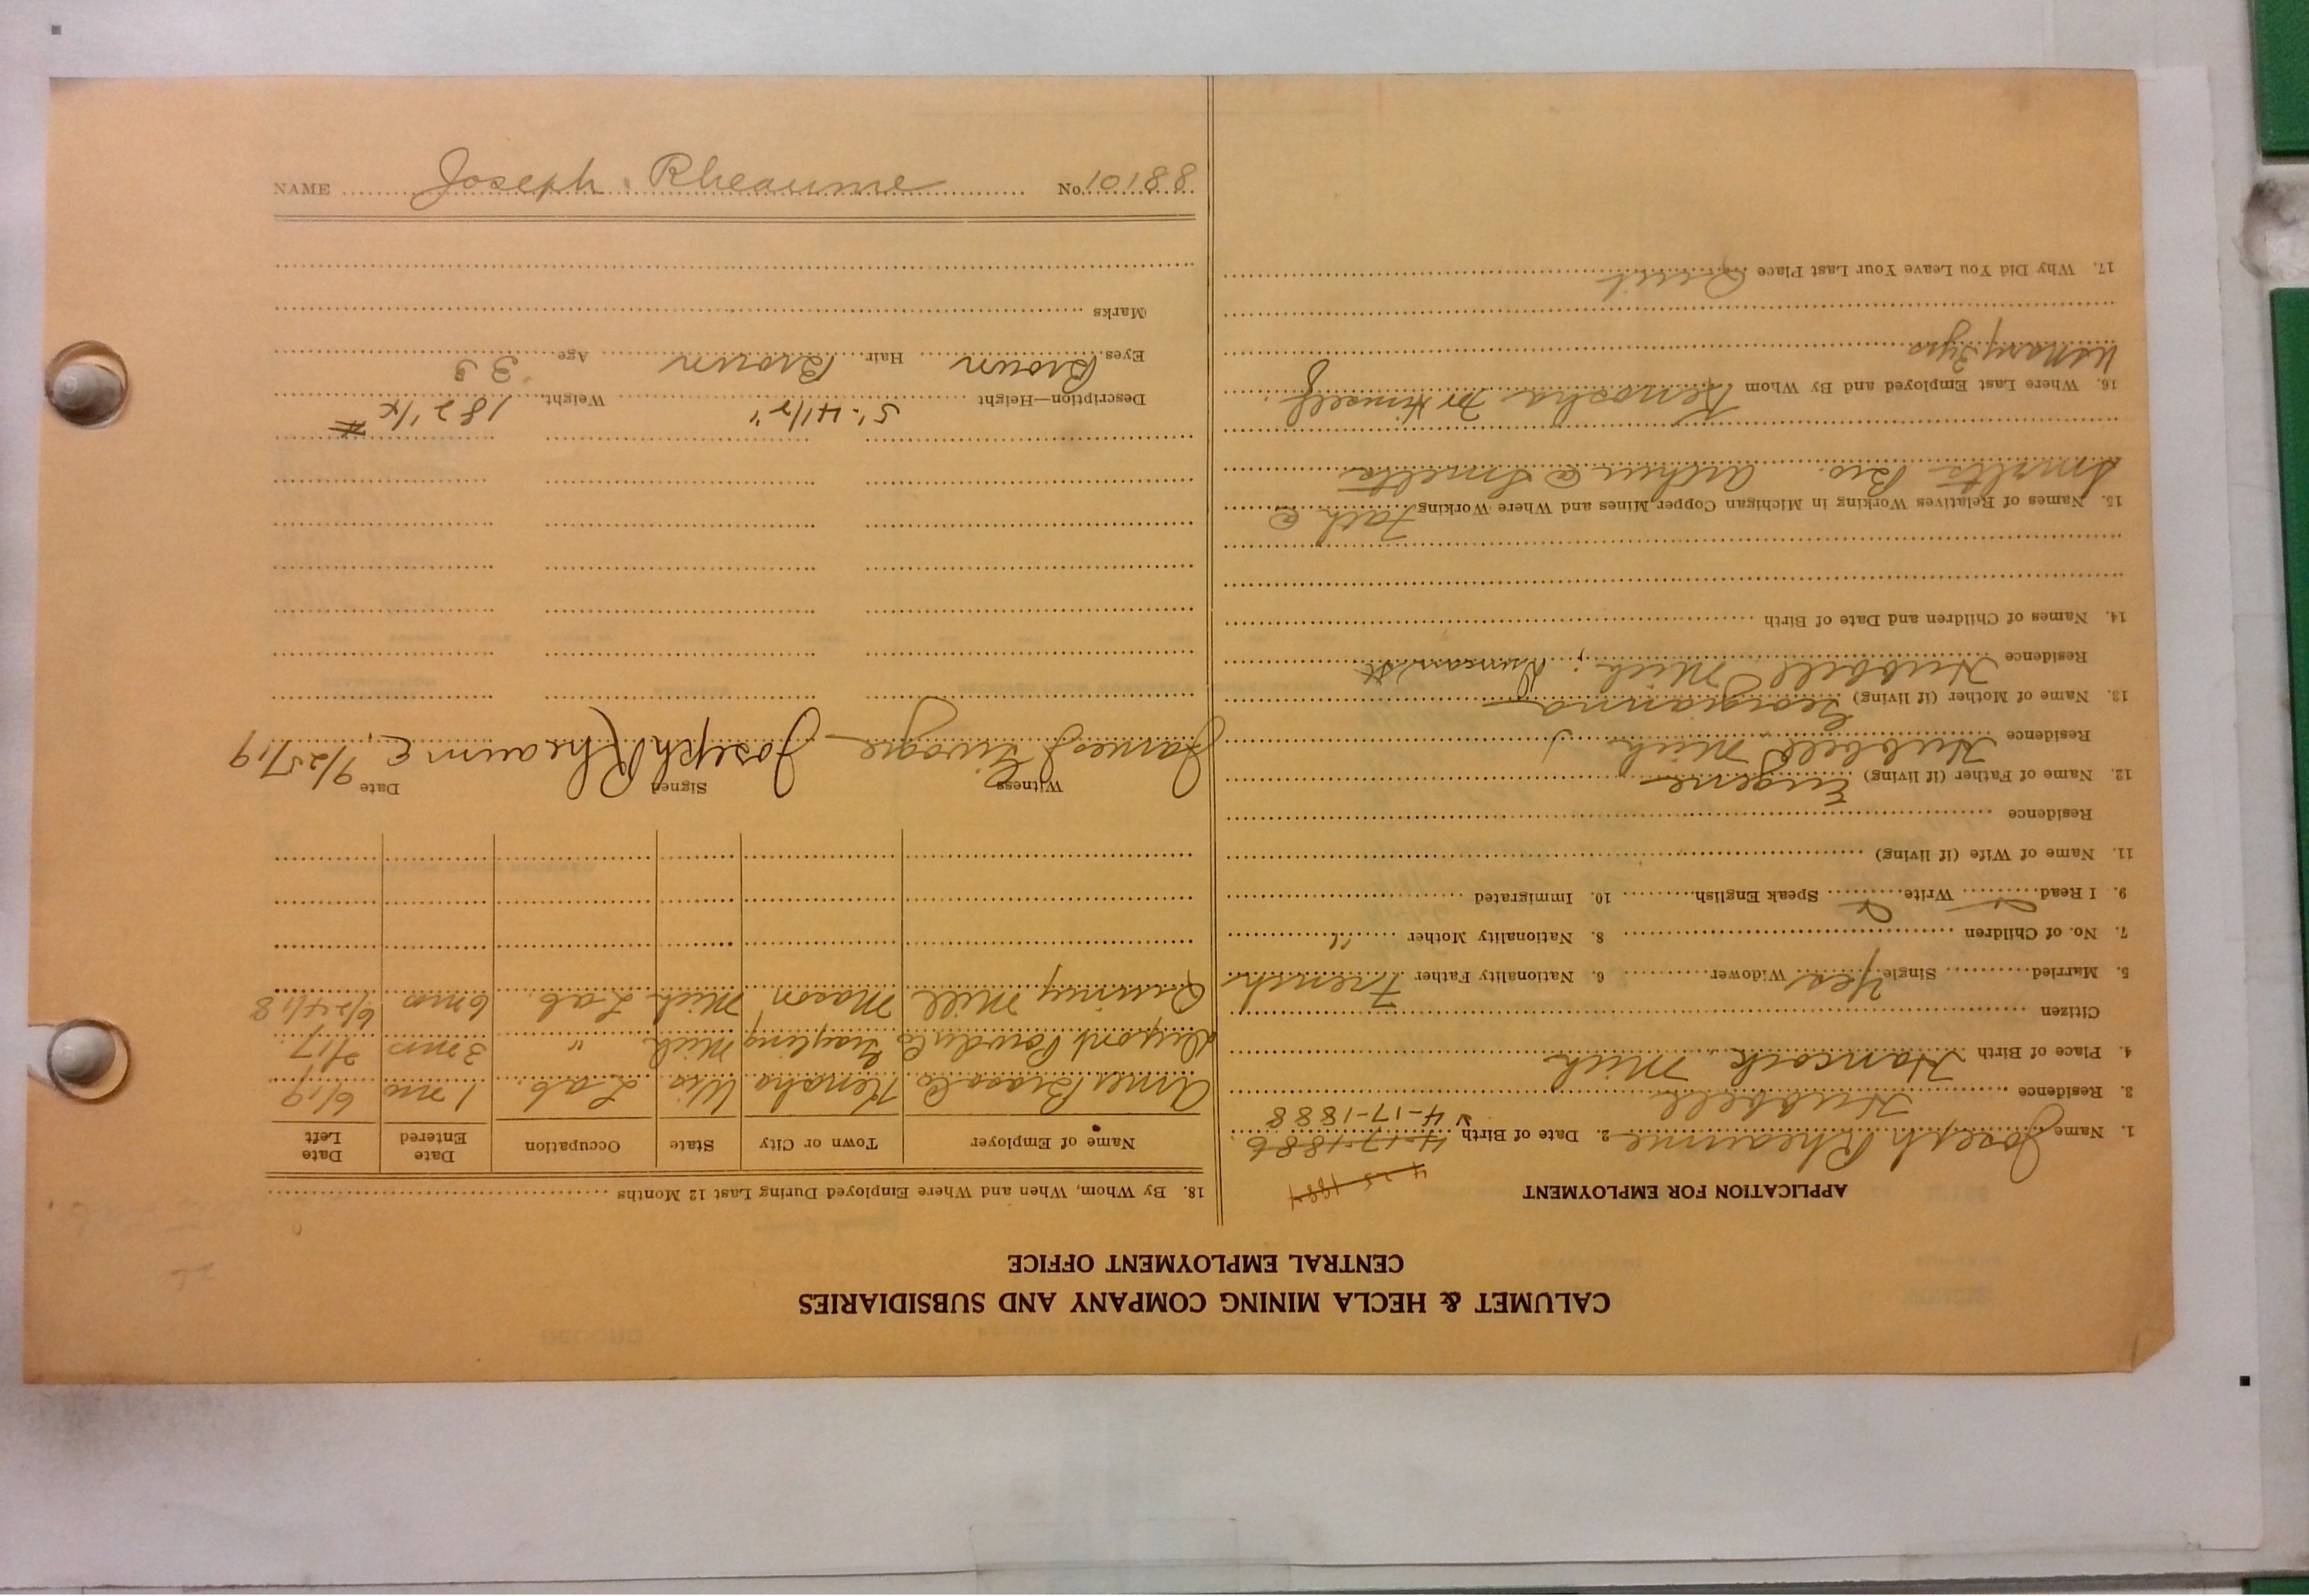 CALUMET & HECLA MINING COMPANY AND SUBSIDIARIES
CENTRAL EMPLOYMENT OFFICE
APPLICATION FOR EMPLOYMENT
4-25-1884
1. Name Joseph Rheaume 2. Date of Birth 4-17-1886
4-17-1888
3. Residence Hubbell
4. Place of Birth Hancock Mich
Citizen
5. Married Single Yes Widower 6. Nationality Father French
7. No. of Children 8. Nationality Mother "
9. I Read Write Speak English 10. Immigrated
11. Name of Wife (if living)
Residence
12. Name of Father (if living) Eugene
Residence Hubbell Mich
13. Name of Mother (if living) Georgianna
Residence Hubbell Mich; Duncan St
14. Names of Children and Date of Birth
15. Names of Relatives Working in Michigan Copper Mines and Where Working Fath @
Smelts Bro. Arthur @ Smelts
16. Where Last Employed and By Whom Kenosha For Himself
17. Why Did You Leave Your Last Place Quit
18. By Whom, When and Where Employed During Last 12 Months
Name of Employer Town or City State Occupation Date Entered Date Left
Amer Brass Co Kenosha Wis Lab. 1 mo 6/19
Dupont Powder Co Grayling Mich " 3 mos 7/17
Quincy Mill Mason Mich Lab. 6 mos 6/24/18
Witness Signed Date
James Joseph Rheaume, 9/25/19
Description—Height 5'-4 1/2" Weight 182 1/2 #
Eyes Brown Hair Brown Age 33
Marks
NAME Joseph Rheaume No. 10188